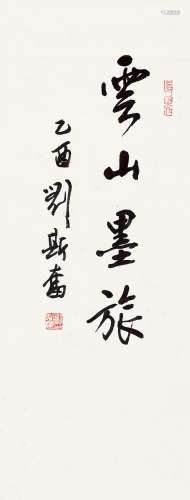 雲山墨旅
乙酉劉斯奮